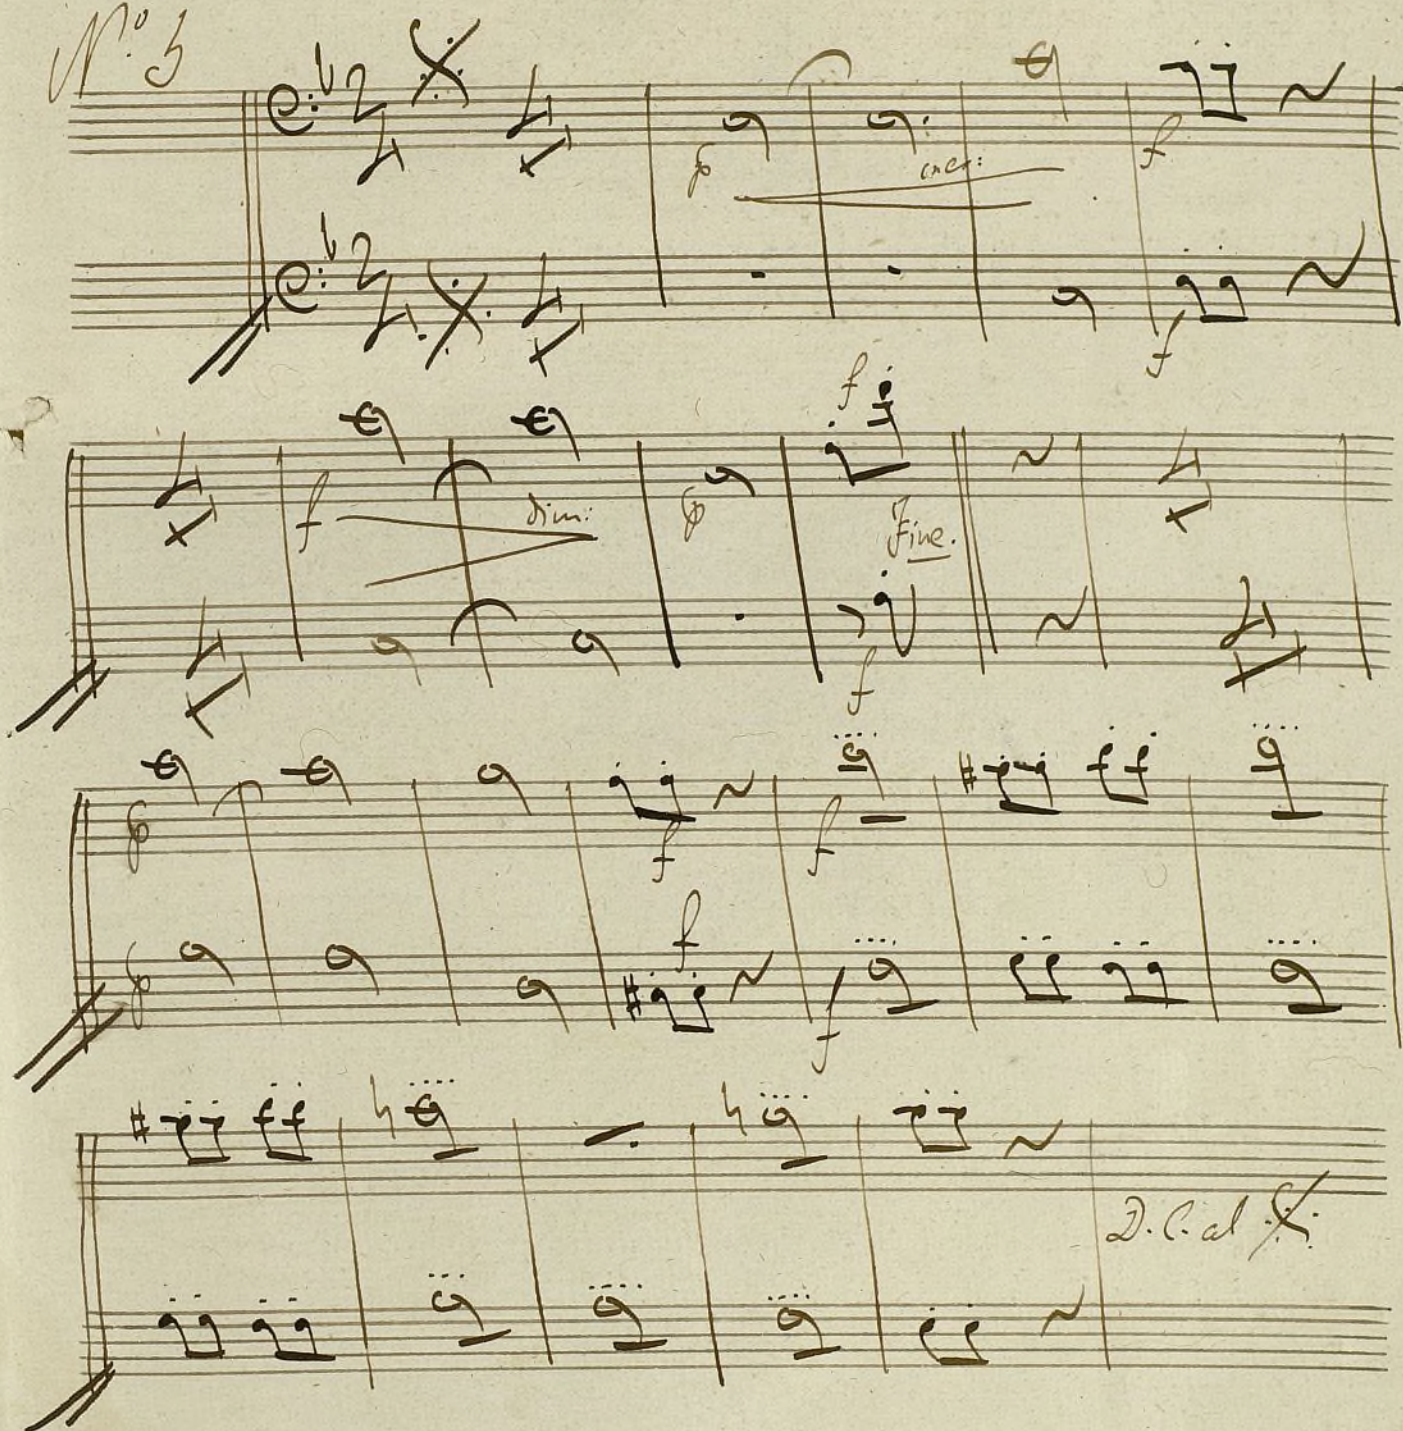 No. 5
2 4
p cres: f
f
2 4
f dim: p f
Fine.
f
p f f
p f f
D. C. al